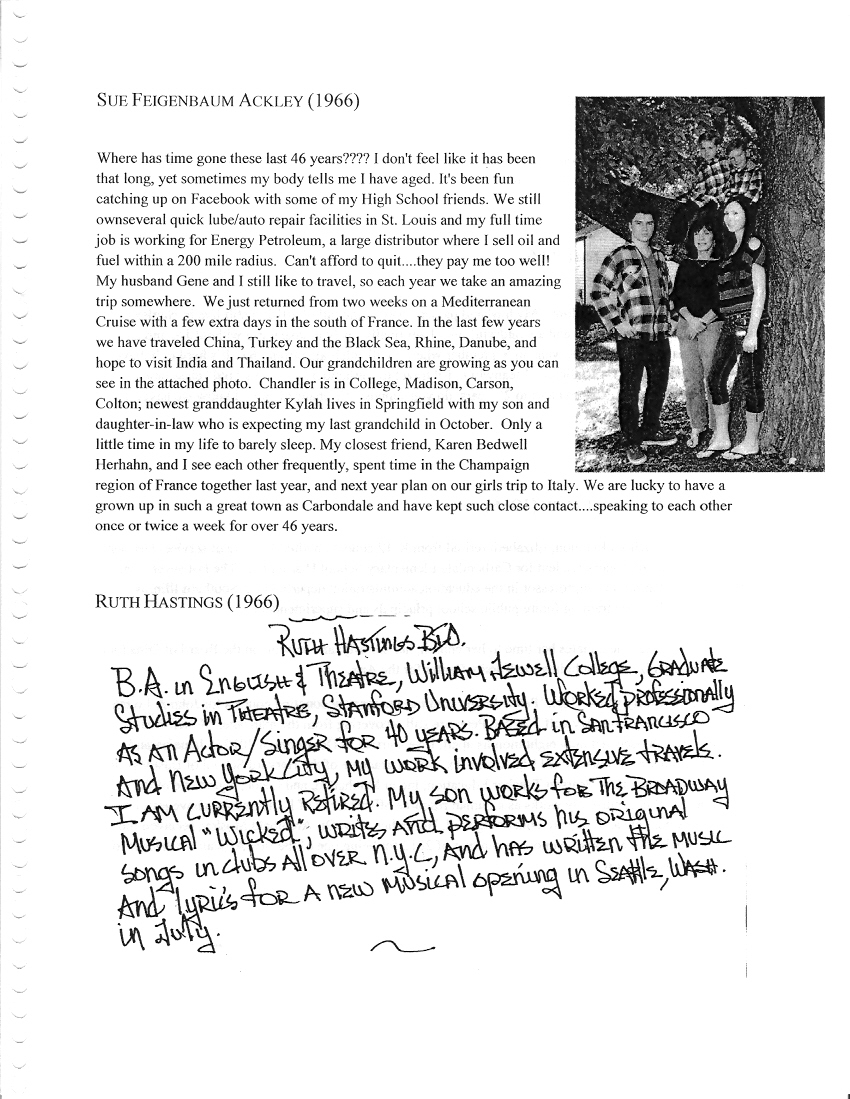 SUE FEIGENBAUM ACKLEY (1966)
Where has time gone these last 46 years???? I don't feel like it has been
that long, yet sometimes my body tells me I have aged. It's been fun
catching up on Facebook with some of my High School friends. We still
ownseveral quick lube/auto repair facilities in St. Louis and my full time
job is working for Energy Petroleum, a large distributor where I sell oil and
fuel within a 200 mile radius.  Can't afford to quit....they pay me too well!
My husband Gene and I still like to travel, so each year we take an amazing
trip somewhere.  We just returned from two weeks on a Mediterranean
Cruise with a few extra days in the south of France. In the last few years
we have traveled China, Turkey and the Black Sea, Rhine, Danube, and
hope to visit India and Thailand. Our grandchildren are growing as you can
see in the attached photo.  Chandler is in College, Madison, Carson,
Colton; newest granddaughter Kylah lives in Springfield with my son and
daughter-in-law who is expecting my last grandchild in October.  Only a
little time in my life to barely sleep. My closest friend, Karen Bedwell
Herhahn, and I see each other frequently, spent time in the Champaign
region of France together last year, and next year plan on our girls trip to Italy. We are lucky to have a
grown up in such a great town as Carbondale and have kept such close contact....speaking to each other
once or twice a week for over 46 years.
RUTH HASTINGS (1966)
RUTH HASTINGS BIO.
B.A. in ENGLISH & THEATRE, WILLIAM JEWELL COLLEGE, GRADUATE
STUDIES in THEATRE, STANFORD UNIVERSITY. WORKED PROFESSIONALLY
AS AN ACTOR/SINGER FOR 40 YEARS. BASED in SAN FRANCISCO
And NEW YORK CITY, MY WORK involved EXTENSIVE TRAVELS.
I AM CURRENTLY RETIRED. My SON WORKS FOR THE BROADWAY
MUSICAL "WICKED", WRITES AND PERFORMS his ORIGINAL
SONGS in clubs ALL OVER N.Y.C, AND has WRITTEN THE MUSIC
And lyrics FOR A NEW MUSICAL opening in SEATTLE, WASH.
in JULY.